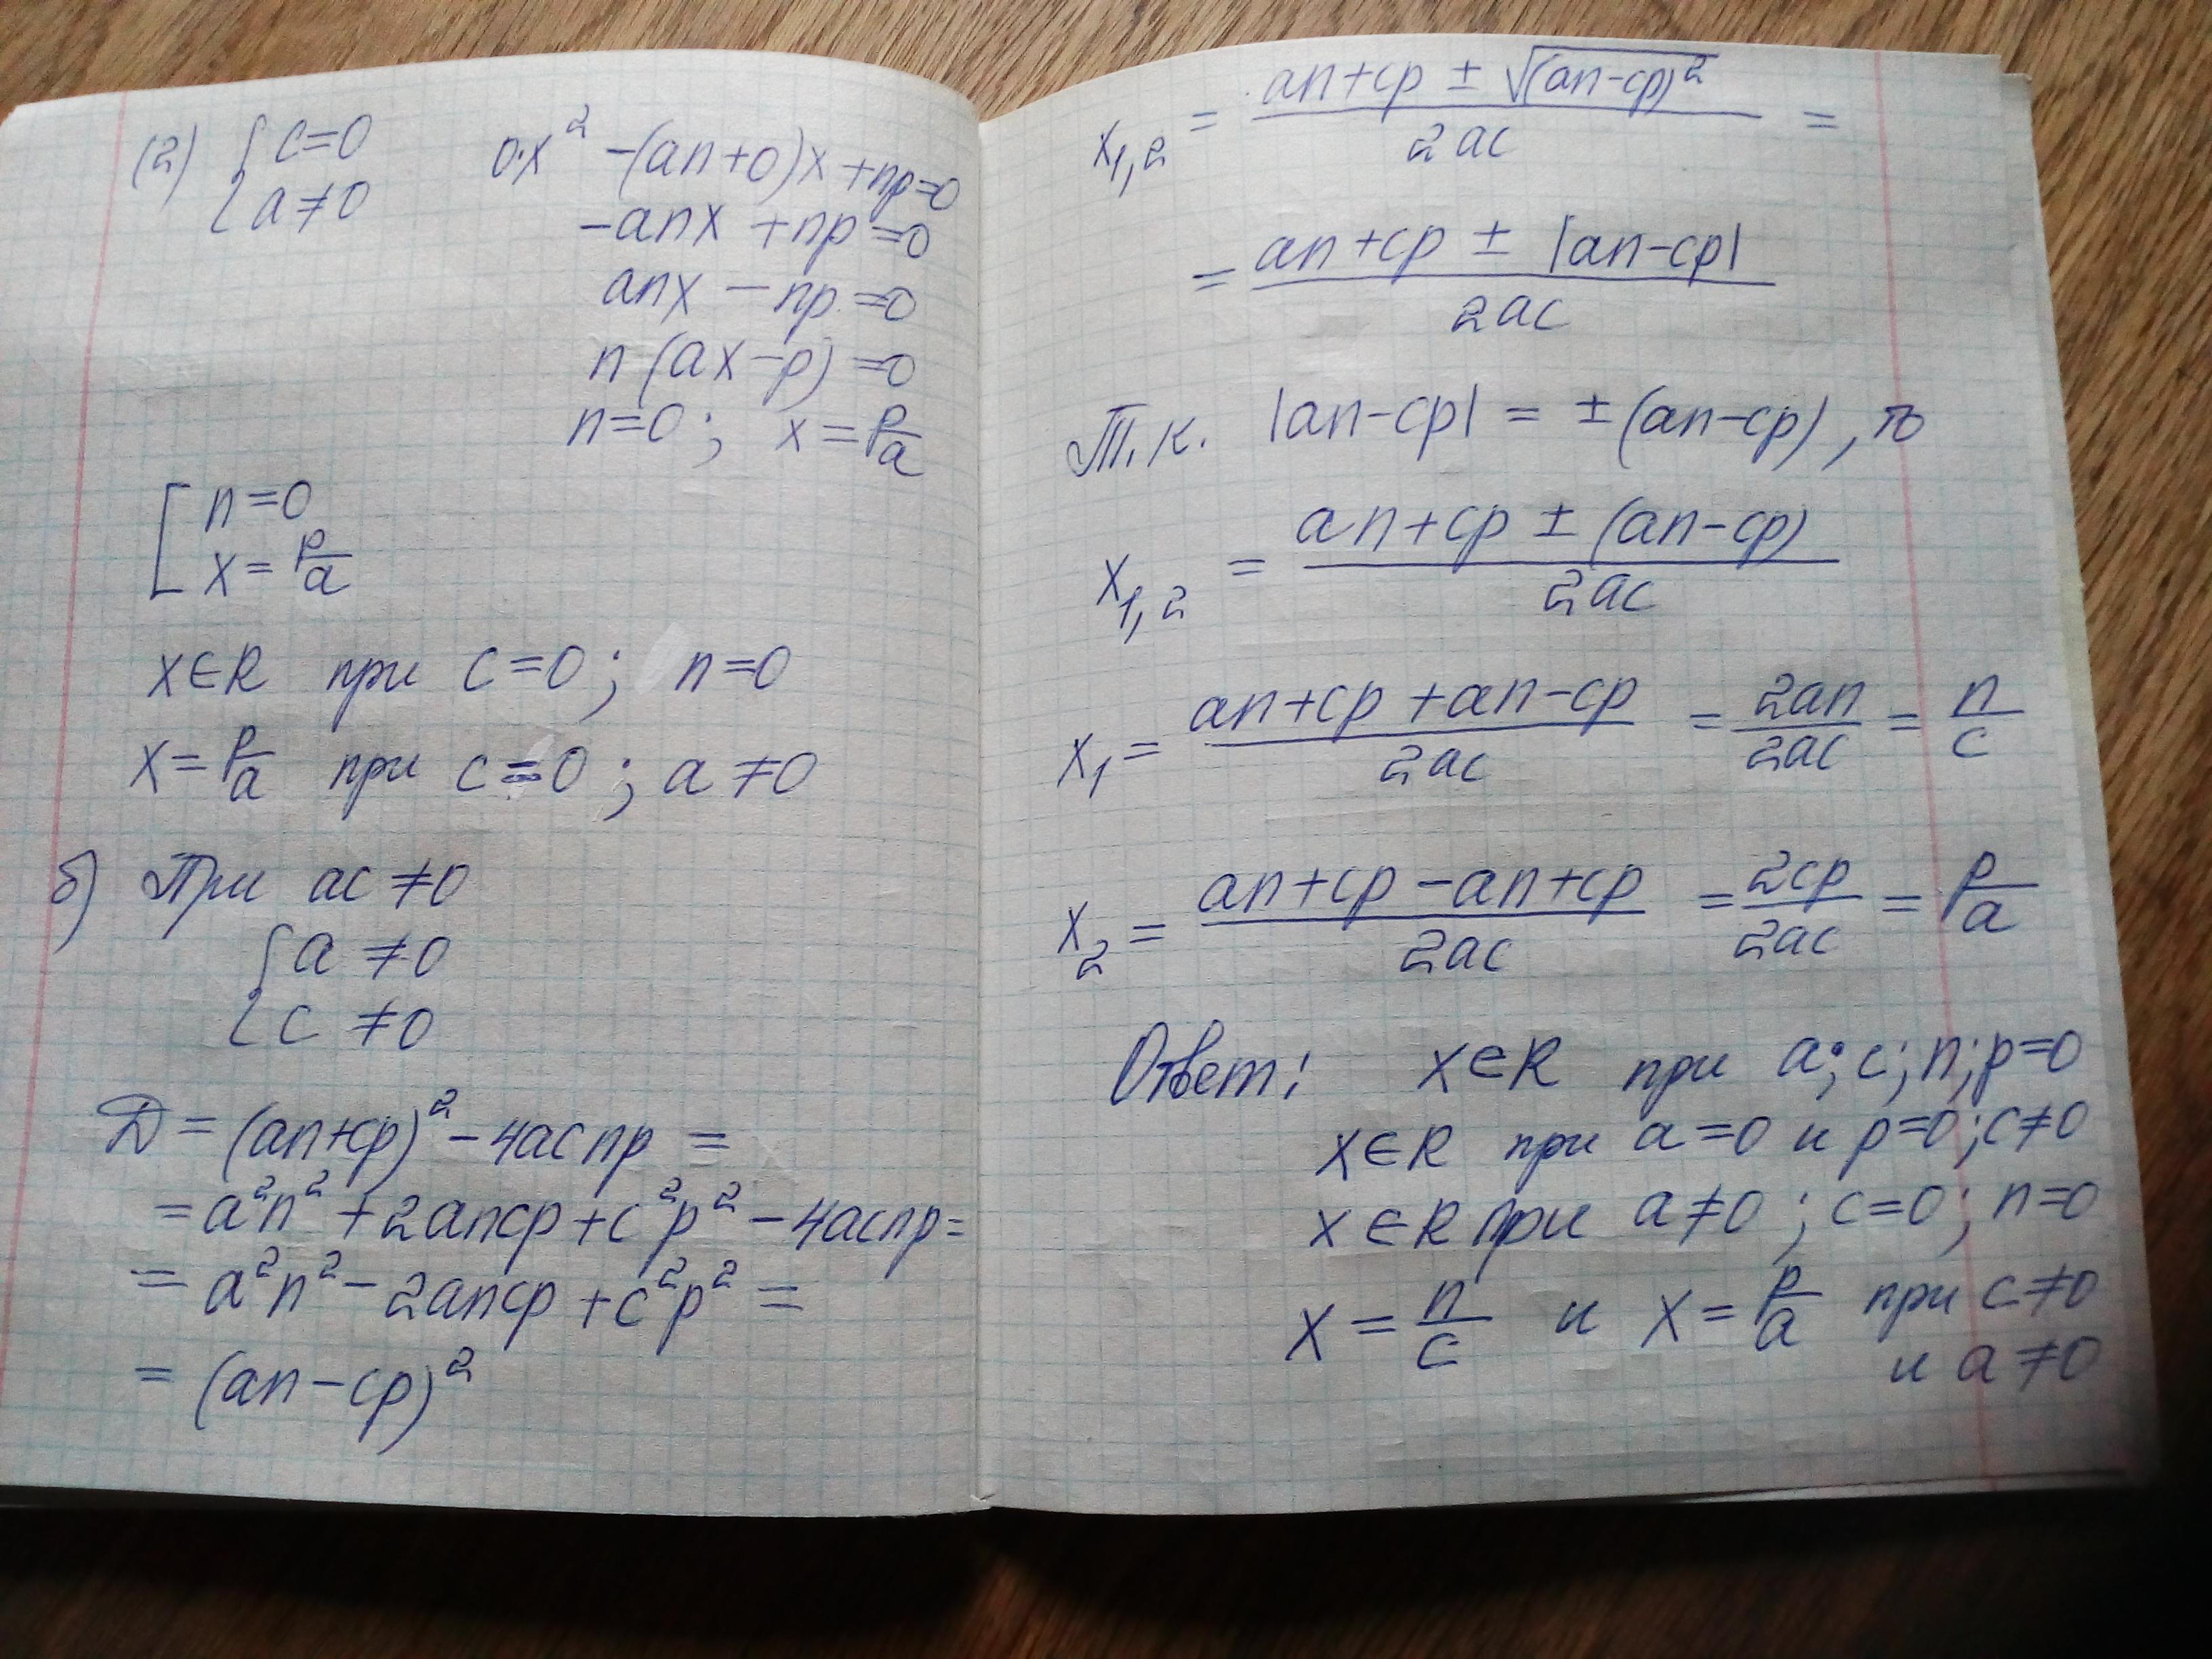 (2) { c=0
a≠0
0·x² −(an+0)x+np=0
−anx +np=0
anx − np=0
n(ax−p)=0
n=0; x=p/a
[ n=0
x=p/a
x∈R при c=0; n=0
x=p/a при c=0; a≠0
б) При ac≠0
{ a≠0
c≠0
D=(an+cp)²−4acnp=
=a²n²+2ancp+c²p²−4acnp=
=a²n²−2ancp+c²p²=
=(an−cp)²
x₁,₂ = (an+cp ± √(an−cp)²)/2ac =
= (an+cp ± |an−cp|)/2ac
Т.к. |an−cp| = ±(an−cp), то
x₁,₂ = (an+cp ± (an−cp))/2ac
x₁= (an+cp+an−cp)/2ac = 2an/2ac = n/c
x₂= (an+cp−an+cp)/2ac = 2cp/2ac = p/a
Ответ: x∈R при a;c;n;p=0
x∈R при a=0 и p=0;c≠0
x∈R при a≠0; c=0; n=0
x = n/c и x = p/a при c≠0
и a≠0